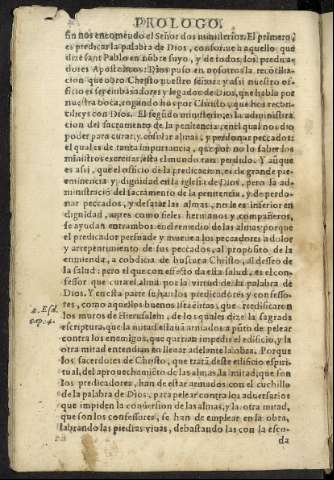 PROLOGO.
fin nos encomẽdo el Señor dos ministerios. El primero,
es predicar la palabra de Dios, conforme a aquello que
dize sant Pablo en nõbre suyo, y de todos los predica-
dores Apostolicos: Dios puso en nosotros la reconcilia-
cion que obro Christo nuestro señor: y assi nuestro of-
ficio es ser embaxadores y legados de Dios, que habla por
nuestra boca, rogando hõs por Christo, que hos recon-
cilieys con Dios. El segũdo ministerio, es la administra
cion del sacramento de la penitẽcia, en el qual nos dio
poder para curar, y cõsolar almas, y perdonar peccados:
el qual es de tanta importancia, que por no lo saber los
ministros exercitar, esta el mundo tan perdido. Y aũque
es assi, que el officio de la predicacion, es de grande pre-
eminencia y dignidad en la iglesia de Dios, pero la ad-
ministraciõ del sacramento de la penitencia, y de perdo-
nar peccados, y desatar las almas, no le es inferior en
dignidad, antes como fieles hermanos y compañeros,
se ayudan entrambos en el remedio de las almas: porque
el predicador persuade y mueue a los peccadores a dolor
y arrepentimiento de sus peccados, al proposito de la
enmienda, a cobdicia de buscar a Christo, al desseo de
la salud: pero el que con effecto da esta salud, es el con-
fessor que cura el alma por la virtud de la palabra de
Dios. Y en esta parte son los predicadores y confesso-
res, como aquellos buenos Israelitas, que reedificaron
2. Esd. los muros de Hierusalem, de los quales dize la sagrada
cap. 4. escriptura, que la mitad estaua armados a pũto de pelear
contra los enemigos, que querian impedir el edificio, y la
otra mitad entendian en lleuar adelante la obra. Porque
los sacerdotes de Christo, que tratã deste edificio espiri-
tual, del aprouechamiẽto de las almas, la mitad, que son
los predicadores, han de estar armados con el cuchillo
de la palabra de Dios, para pelear contra los aduersarios
que impiden la conuersion de las almas, y la otra mitad,
que son los confessores, se han de emplear en la obra,
labrando las piedras viuas, debastando las con la esco-
da